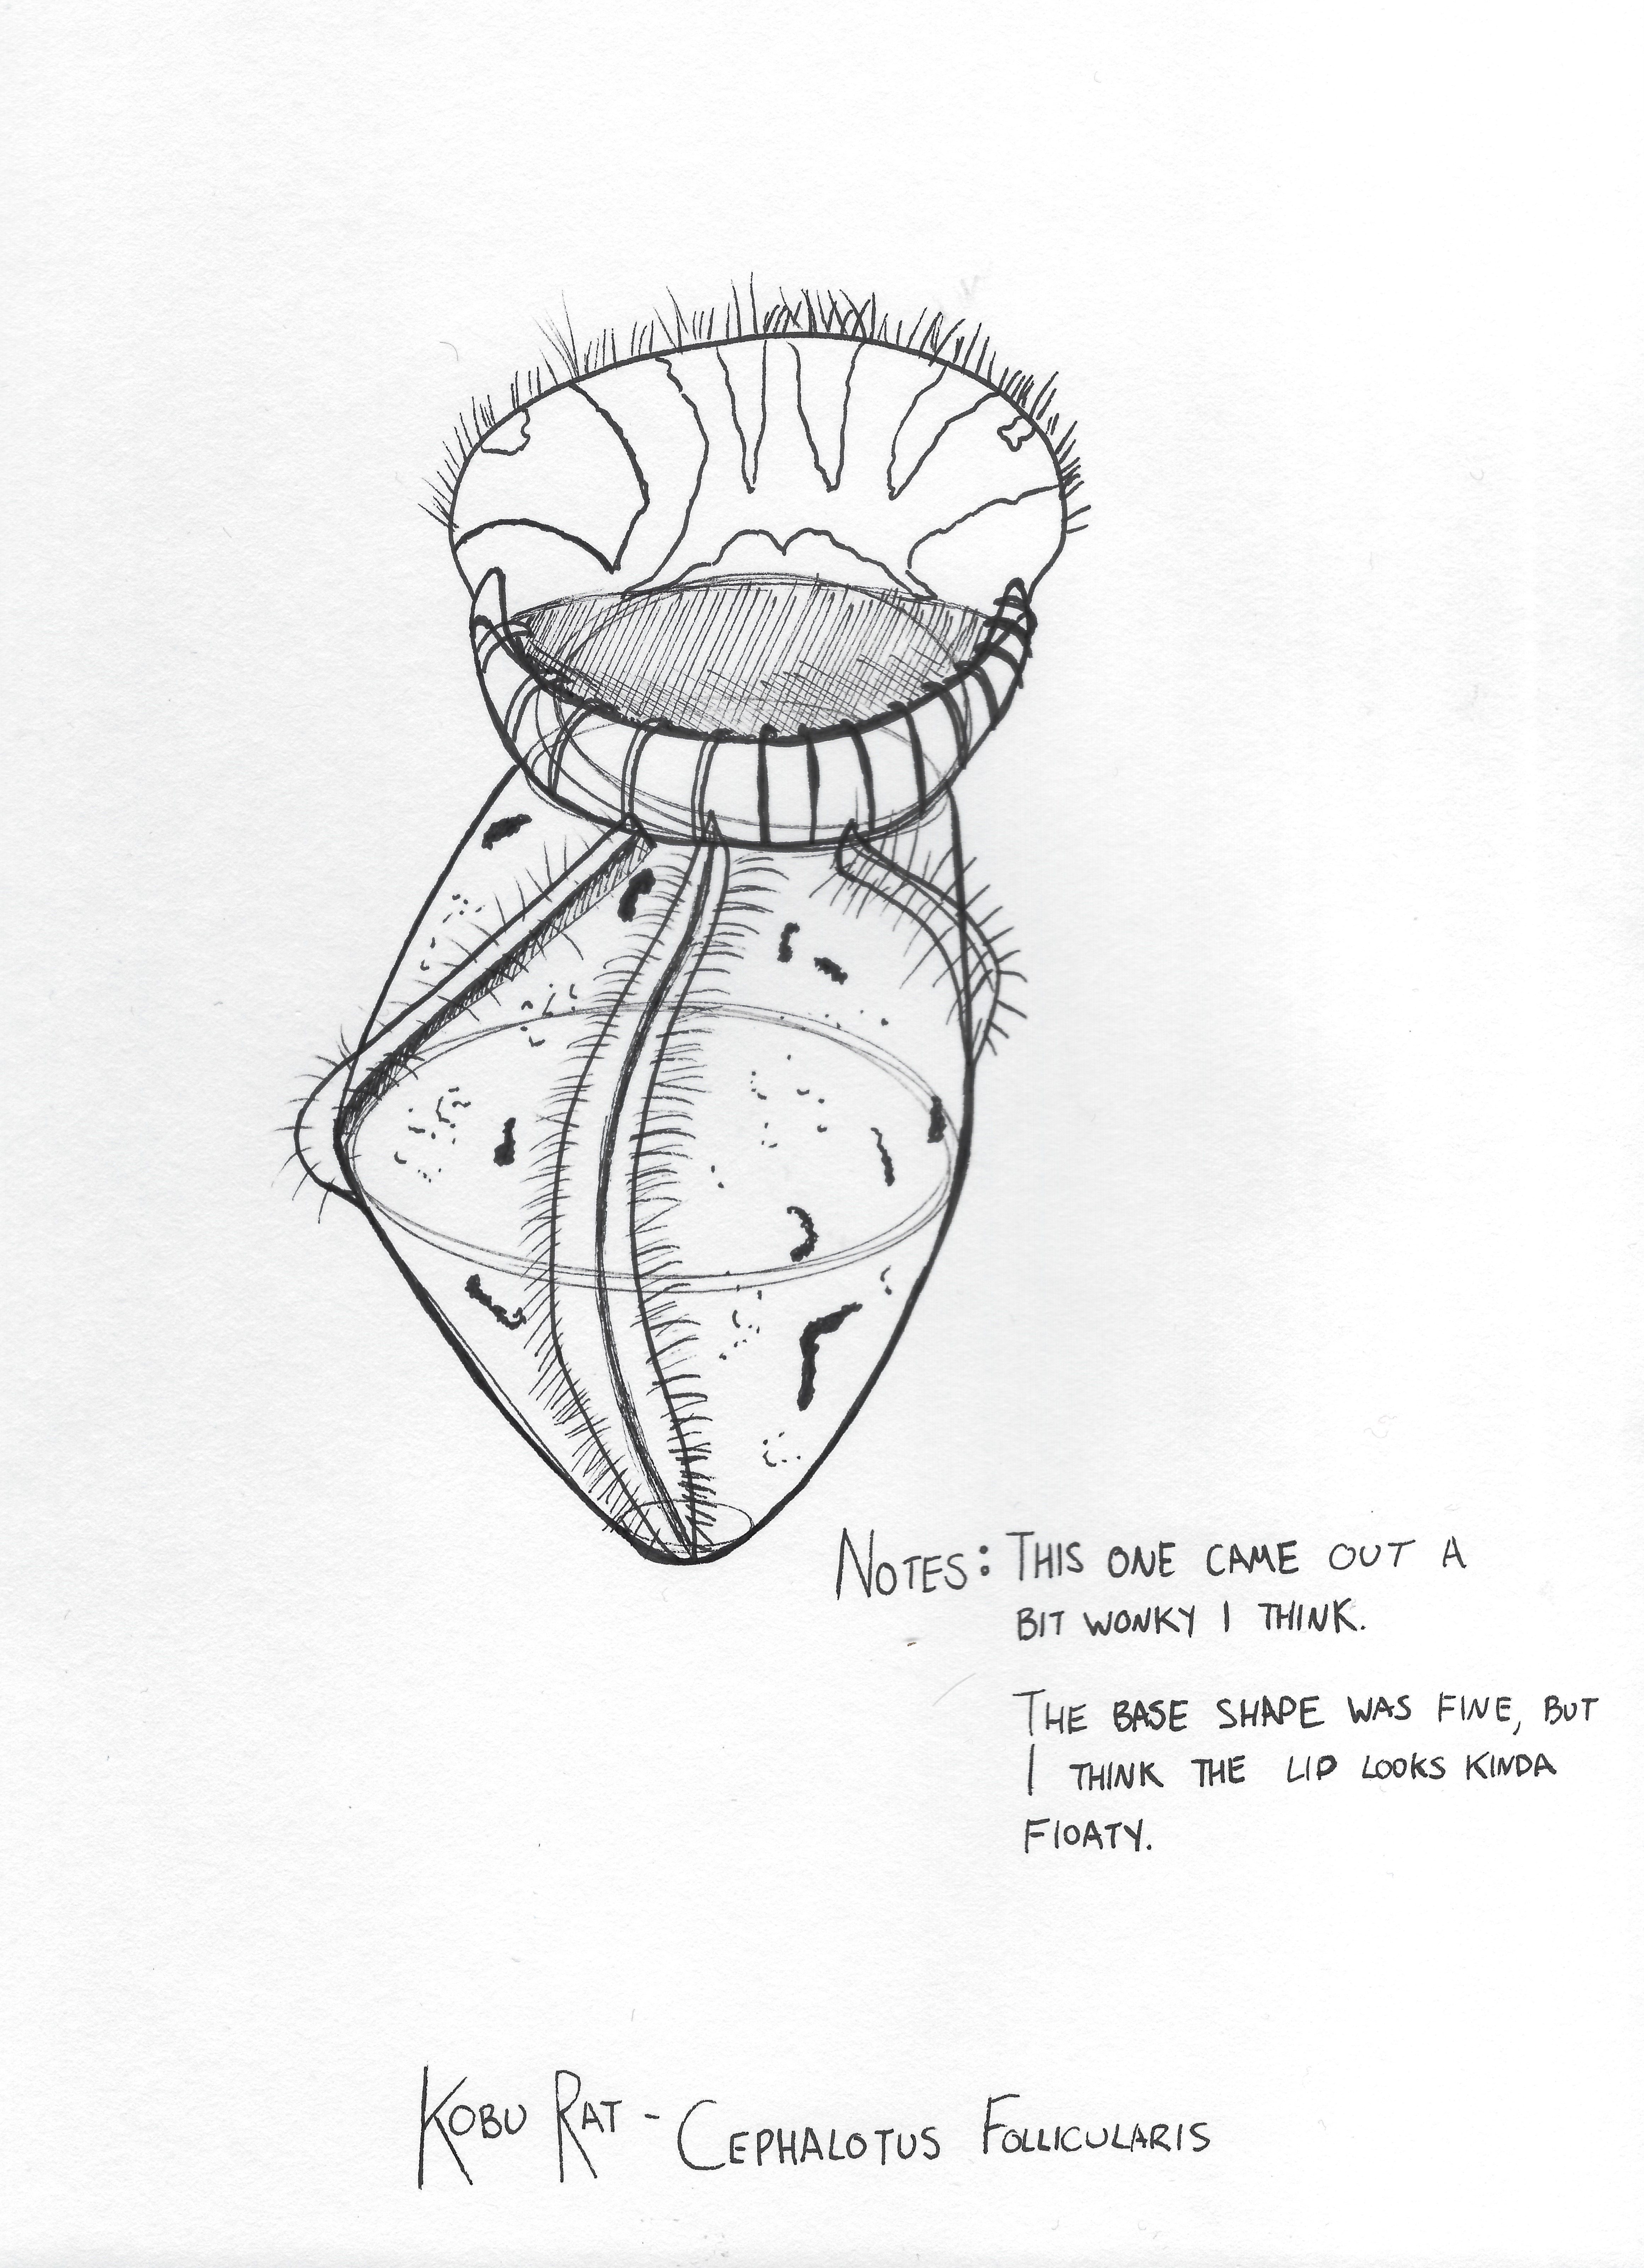 NOTES: THIS ONE CAME OUT A
BIT WONKY I THINK.
THE BASE SHAPE WAS FINE, BUT
I THINK THE LIP LOOKS KINDA
FLOATY.
KOBU RAT - CEPHALOTUS FOLLICULARIS